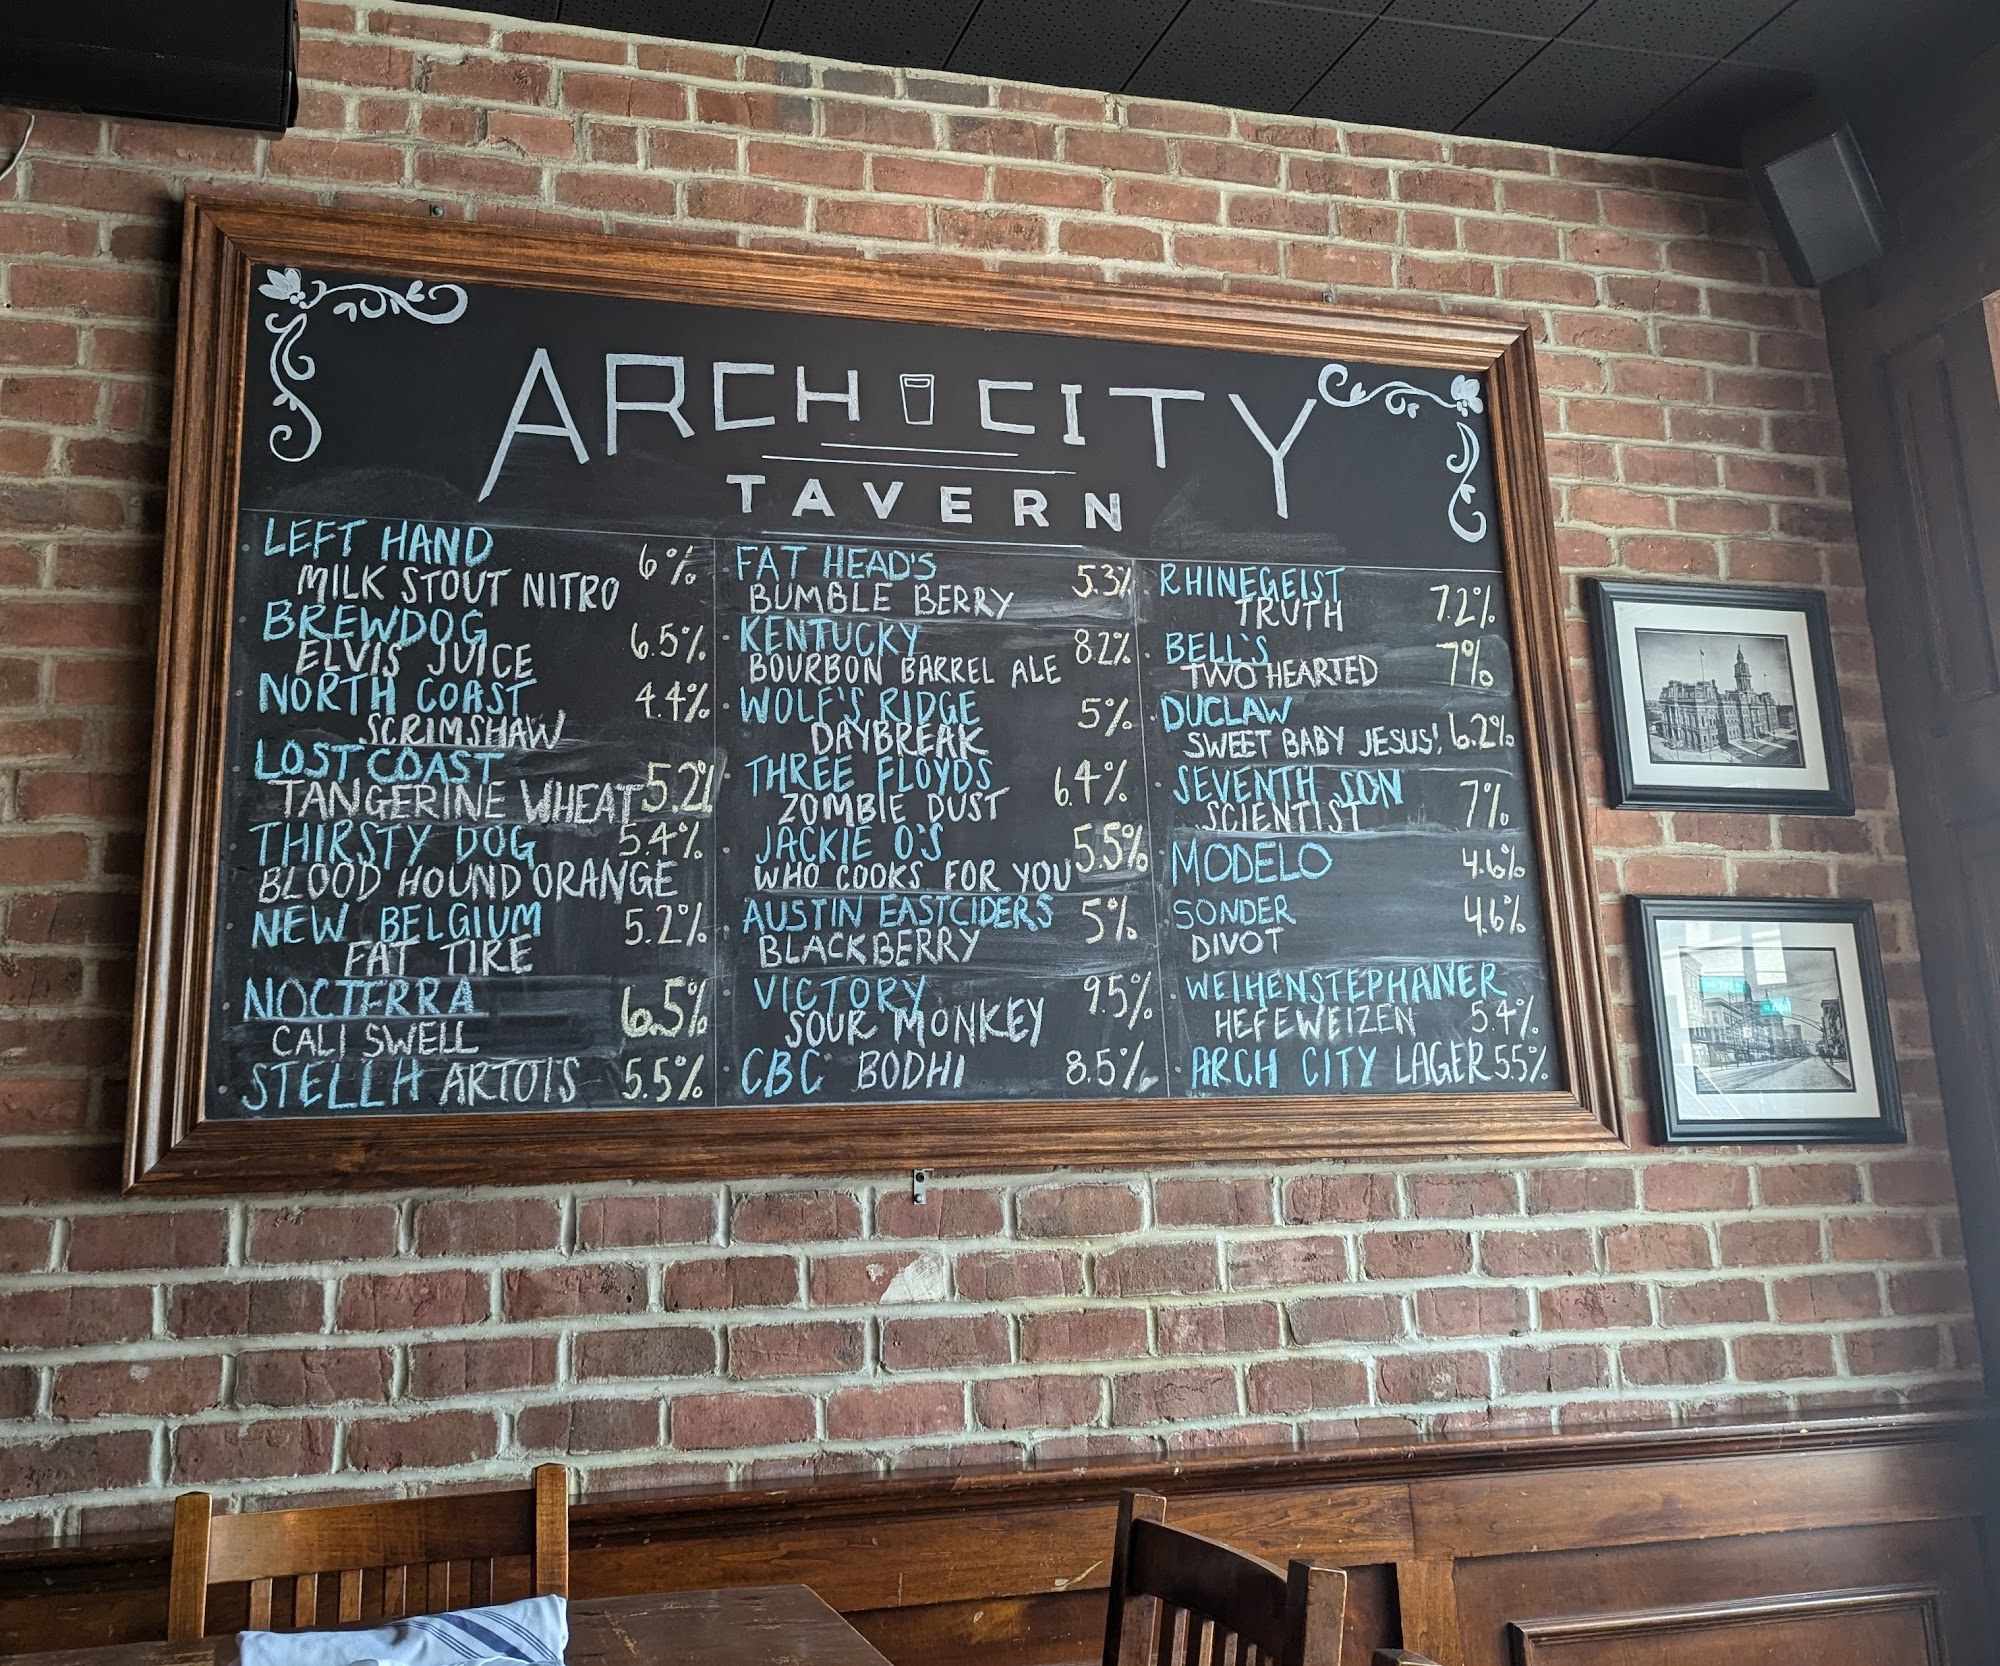 ARCH CITY
TAVERN
LEFT HAND
MILK STOUT NITRO 6%
BREWDOG
ELVIS JUICE 6.5%
NORTH COAST 4.4%
SCRIMSHAW
LOST COAST
TANGERINE WHEAT 5.2%
THIRSTY DOG 5.4%
BLOOD HOUND ORANGE
NEW BELGIUM 5.2%
FAT TIRE
NOCTERRA 6.5%
CALI SWELL
STELLA ARTOIS 5.5%
FAT HEAD'S 5.3%
BUMBLE BERRY
KENTUCKY 8.2%
BOURBON BARREL ALE
WOLF'S RIDGE 5%
DAYBREAK
THREE FLOYDS 6.4%
ZOMBIE DUST
JACKIE O'S 5.5%
WHO COOKS FOR YOU
AUSTIN EASTCIDERS 5%
BLACKBERRY
VICTORY 9.5%
SOUR MONKEY
CBC BODHI 8.5%
RHINEGEIST 7.2%
TRUTH
BELL'S 7%
TWO HEARTED
DUCLAW
SWEET BABY JESUS! 6.2%
SEVENTH SON 7%
SCIENTIST
MODELO 4.6%
SONDER 4.6%
DIVOT
WEIHENSTEPHANER
HEFEWEIZEN 5.4%
ARCH CITY LAGER 5.5%